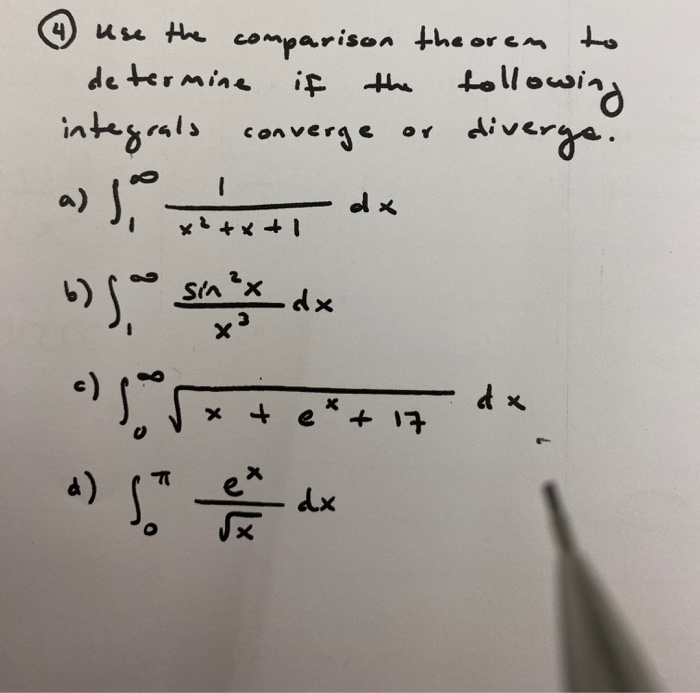 ④ use the comparison theorem to
determine if the following
integrals converge or diverge.
a) ∫₁^∞ 1/(x² + x + 1) dx
b) ∫₁^∞ sin²x/x³ dx
c) ∫₀^∞ √(x + eˣ + 17) dx
d) ∫₀^π eˣ/√x dx